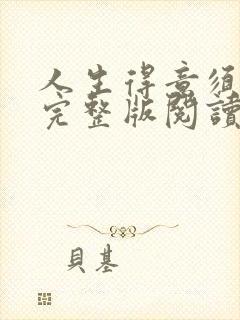 人生得意須
完整版閱讀
貝基